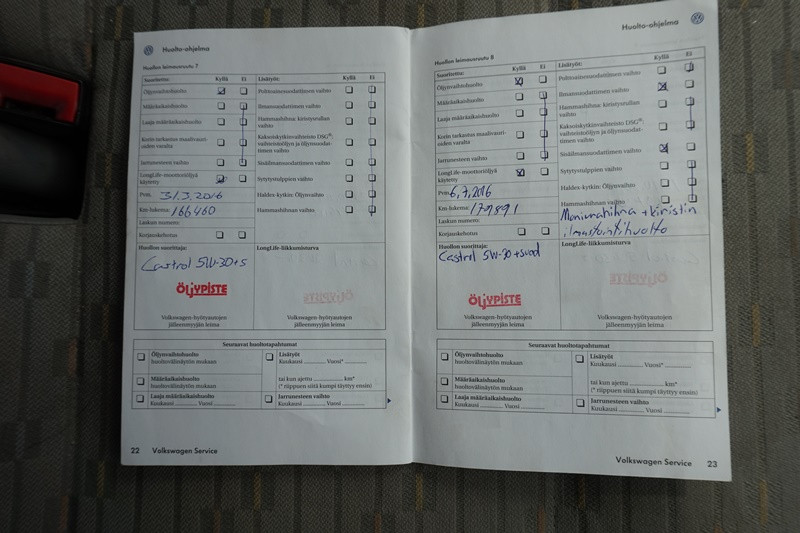 Huolto-ohjelma
Huollon leimausruutu 7
Suoritettu: Kyllä Ei Lisätyöt: Kyllä Ei
Öljynvaihtohuolto
Määräaikaishuolto
Laaja määräaikaishuolto
Korin tarkastus maalivauri-
oiden varalta
Jarrunesteen vaihto
LongLife-moottoriöljyä
käytetty
Pvm. 31.3.2016
Km-lukema: 166460
Laskun numero:
Korjauskehotus
Polttoainesuodattimen vaihto
Ilmansuodattimen vaihto
Hammashihna: kiristysrullan
vaihto
Kaksoiskytkinvaihteisto DSG®:
vaihteistoöljyn ja öljynsuodat-
timen vaihto
Sisäilmansuodattimen vaihto
Sytytystulppien vaihto
Haldex-kytkin: Öljynvaihto
Hammashihnan vaihto
Huollon suorittaja:
Castrol 5W-30+S
ÖLJYPISTE
Volkswagen-hyötyautojen
jälleenmyyjän leima
LongLife-liikkumisturva
Volkswagen-hyötyautojen
jälleenmyyjän leima
Seuraavat huoltotapahtumat
Öljynvaihtohuolto
huoltovälinäytön mukaan
Määräaikaishuolto
huoltovälinäytön mukaan
Laaja määräaikaishuolto
Kuukausi Vuosi
Lisätyöt
Kuukausi Vuosi*
tai kun ajettu km*
(* riippuen siitä kumpi täyttyy ensin)
Jarrunesteen vaihto
Kuukausi Vuosi
22 Volkswagen Service
Huolto-ohjelma
Huollon leimausruutu 8
Suoritettu: Kyllä Ei Lisätyöt: Kyllä Ei
Öljynvaihtohuolto
Määräaikaishuolto
Laaja määräaikaishuolto
Korin tarkastus maalivauri-
oiden varalta
Jarrunesteen vaihto
LongLife-moottoriöljyä
käytetty
Pvm. 6,7,2016
Km-lukema: 179891
Laskun numero:
Korjauskehotus
Polttoainesuodattimen vaihto
Ilmansuodattimen vaihto
Hammashihna: kiristysrullan
vaihto
Kaksoiskytkinvaihteisto DSG®:
vaihteistoöljyn ja öljynsuodat-
timen vaihto
Sisäilmansuodattimen vaihto
Sytytystulppien vaihto
Haldex-kytkin: Öljynvaihto
Hammashihnan vaihto
Moniurahihna + kiristin
ilmastointihuolto
Huollon suorittaja:
Castrol 5W-30 +suod
ÖLJYPISTE
Volkswagen-hyötyautojen
jälleenmyyjän leima
LongLife-liikkumisturva
Volkswagen-hyötyautojen
jälleenmyyjän leima
Seuraavat huoltotapahtumat
Öljynvaihtohuolto
huoltovälinäytön mukaan
Määräaikaishuolto
huoltovälinäytön mukaan
Laaja määräaikaishuolto
Kuukausi Vuosi
Lisätyöt
Kuukausi Vuosi*
tai kun ajettu km*
(* riippuen siitä kumpi täyttyy ensin)
Jarrunesteen vaihto
Kuukausi Vuosi
Volkswagen Service 23